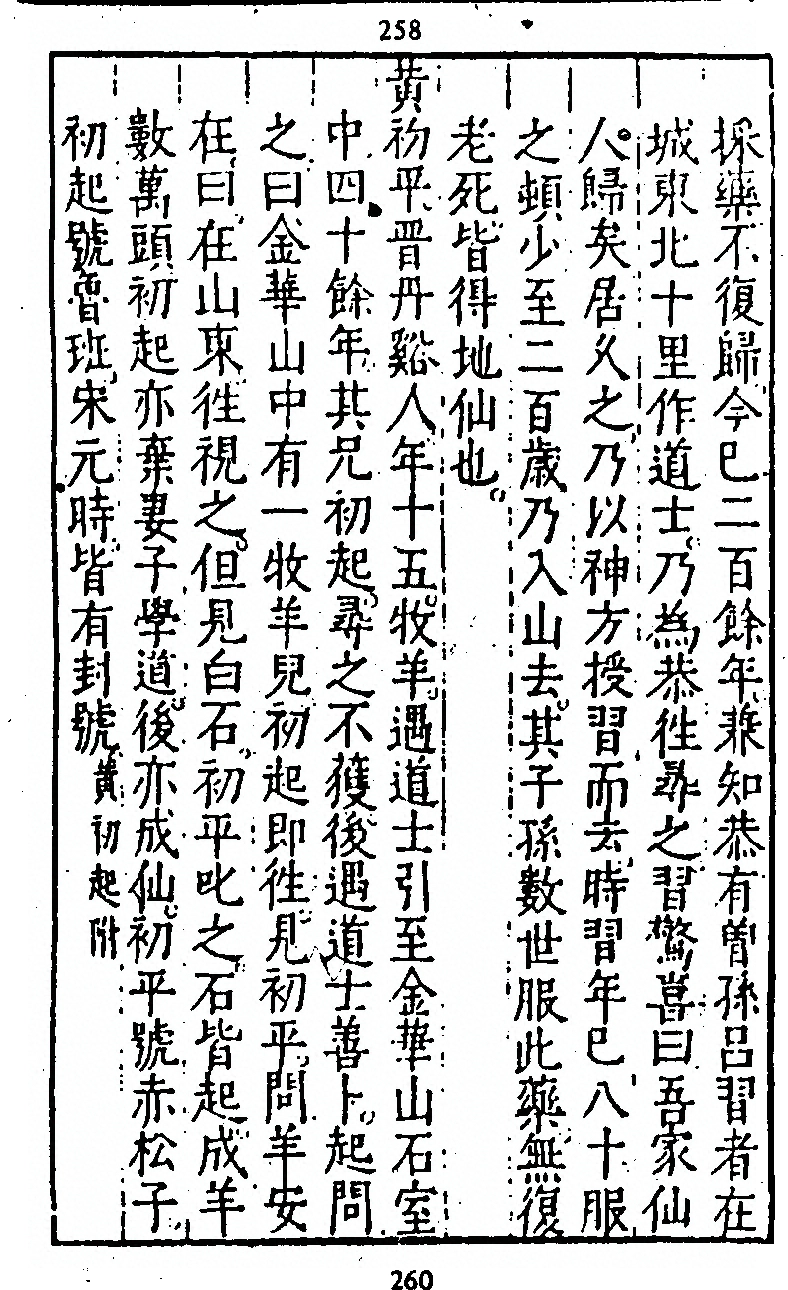 258
採藥不復歸今已二百餘年兼知恭有曽孫呂習者在
城東北十里作道士乃為恭徃尋之習驚喜曰吾家仙
人歸矣居久之乃以神方授習而去時習年已八十服
之頓少至二百歲乃入山去其子孫數世服此藥無復
老死皆得地仙也
黃初平晋丹谿人年十五牧羊遇道士引至金華山石室
中四十餘年其兄初起尋之不獲後遇道士善卜起問
之曰金華山中有一牧羊兒初起即徃見初平問羊安
在曰在山東徃視之但見白石初平叱之石皆起成羊
數萬頭初起亦棄妻子學道後亦成仙初平號赤松子
初起號魯班宋元時皆有封號黃初起附
260